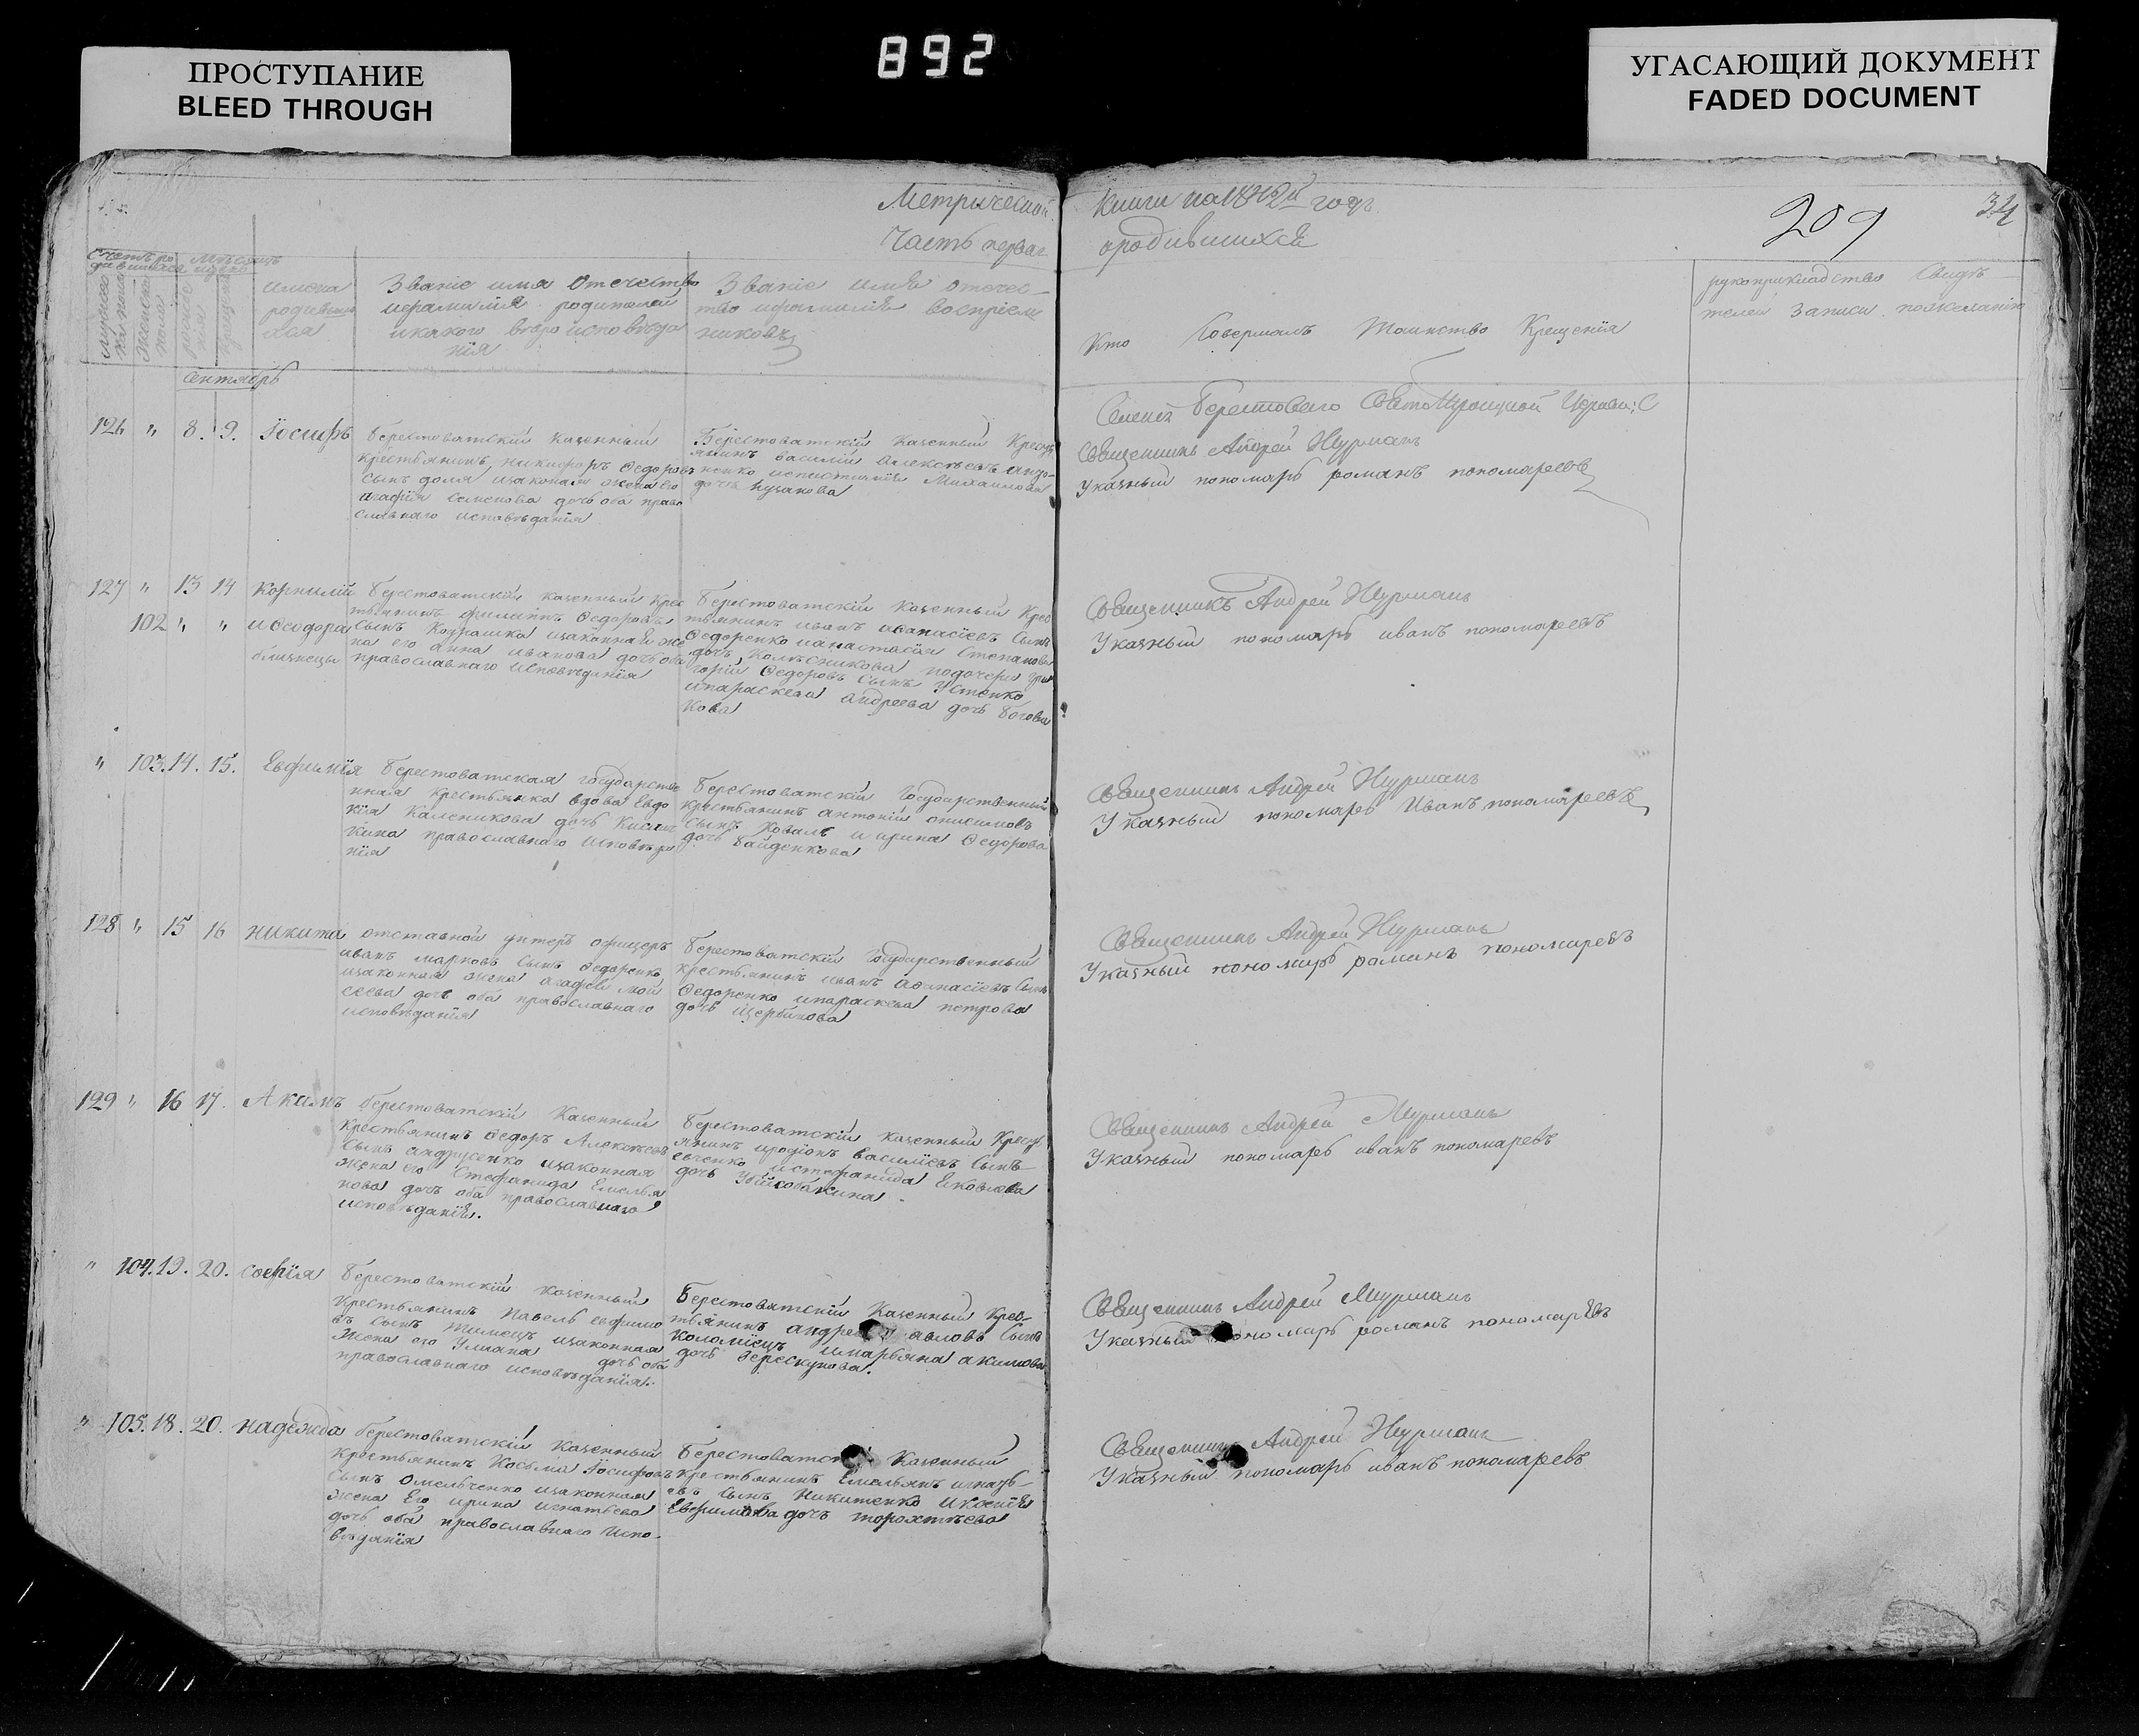 892
ПРОСТУПАНИЕ
BLEED THROUGH
УГАСАЮЩИЙ ДОКУМЕНТ
FADED DOCUMENT
Метрической
Часть первая
книги на 1842й годъ
ородившихся
209
34
имена
родивших
ся
Званіе имя Отечество
ифамилія родителей
икакого вѣроисповѣда
нія
Званіе имя отечес
тво ифамилія воспріем
никовъ
Кто Совершалъ Таинство Крещенія
рукоприкладство Свидѣ
телей Записи пожеланію
сентябрь
126 " 8. 9. Іосифъ
берестоватскій казенный
крестьянинъ никифоръ Ѳедоровъ
сынъ доля изаконная жена его
агафія семенова дочь оба право
славнаго исповѣданія
Берестоватскій казенный Кресть
янинъ василій алексѣевъ
Михаилова
дочь
Селенія берестоваго Церкви:
Священникъ Андрей
Указный пономарь романъ пономаревъ
127 " 13 14 корнилій
102 " " иѲеодора
близнецы
берестоватскій казенный крес
тьянинъ филиппъ Ѳедоровъ
сынъ изаконная же
на его анна иванова дочь оба
православнаго исповѣданія
берестоватскій казенный Крес
тьянинъ иванъ аѳанасіевъ Сынъ
Ѳедоренко ианастасія Степанова
дочь Колѣсникова подочери гри
горій Ѳедоровъ Сынъ Устенко
ипараскева андреева дочь
кова
Священникъ Андрей
Указный пономарь иванъ пономаревъ
" 103. 14. 15. Евфимія
берестоватская государстве
нная крестьянка вдова Евдо
кія Каленикова дочь
кина православнаго исповѣда
нія
берестоватскій Государственный
крестьянинъ антоній онисимовъ
сынъ Коваль и ирина Ѳедорова
дочь Гайденкова
Священникъ Андрей
Указный пономарь Иванъ пономаревъ
128 " 15 16 никита
отставной унтеръ офицеръ
иванъ марковъ Сынъ Ѳедоренко
изаконная жена агафія мои
сеева дочь оба православнаго
исповѣданія
берестоватскій Государственный
крестьянинъ иванъ аѳанасіевъ Сынъ
Ѳедоренко ипараскева петрова
дочь Щербакова
Священникъ Андрей
Указный пономарь романъ пономаревъ
129 " 16 17. Акимъ
берестоватскій Казенный
крестьянинъ Ѳедоръ Алексѣевъ
сынъ андрусенко изаконная
жена его Стефанида Емелья
нова дочь оба православнаго
исповѣданія.
берестоватскій казенный Кресть
янинъ иродіонъ василіевъ Сынъ
евченко истефанида Яковлева
дочь Убийсобакина
Священникъ Андрей
Указный пономарь иванъ пономаревъ
" 104. 19. 20. софія
берестоватскій казенный
крестьянинъ павелъ евфимо
въ сынъ изаконная
жена его Уліана дочь оба
православнаго исповѣданія.
берестоватскій Казенный Крес-
тьянинъ андрей Сынъ
коломіецъ имарьяна акимова
дочь верескунова.
Священникъ Андрей
Указный пономарь романъ пономаревъ
" 105. 18. 20. надежда
берестоватскій казенный
крестьянинъ Косьма Іосифовъ
сынъ Омельченко изаконная
жена Его ирина игнатьева
дочь оба православнаго испо-
вѣданія
Казенный
крестьянинъ Емельянъ игнать-
евъ сынъ Никитенко иксенія
Евфимова дочь
Священникъ Андрей
Указный пономарь иванъ пономаревъ